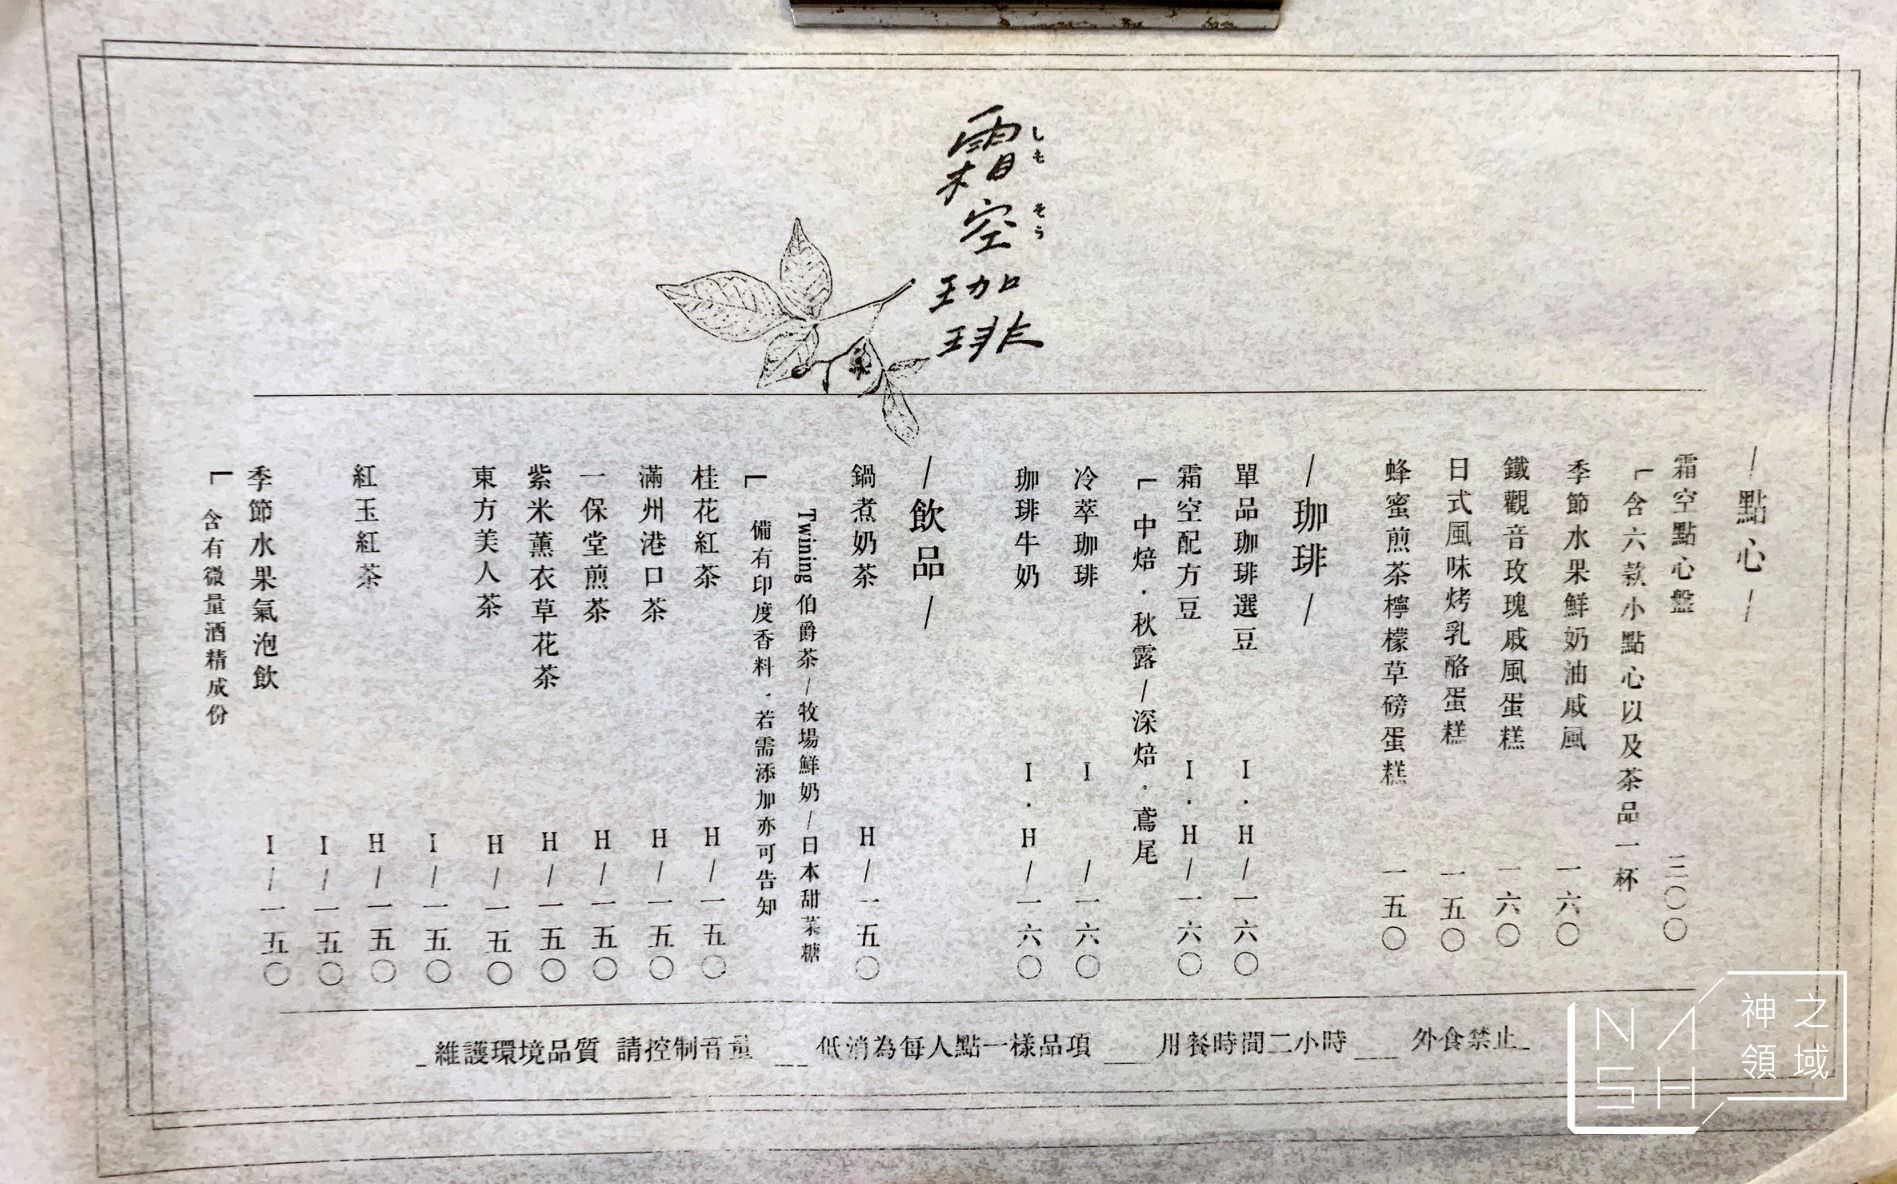 霜空珈琲
しも そう
/點心/
霜空點心盤 三〇〇
含六款小點心以及茶品一杯
季節水果鮮奶油戚風 一六〇
鐵觀音玫瑰戚風蛋糕 一六〇
日式風味烤乳酪蛋糕 一五〇
蜂蜜煎茶檸檬草磅蛋糕 一五〇
/珈琲/
單品珈琲選豆 I.H/一六〇
霜空配方豆 I.H/一六〇
中焙.秋露/深焙.鳶尾
冷萃珈琲 I /一六〇
珈琲牛奶 I.H/一六〇
/飲品/
鍋煮奶茶 H/一五〇
Twining伯爵茶/牧場鮮奶/日本甜菜糖
備有印度香料.若需添加亦可告知
桂花紅茶 H/一五〇
滿州港口茶 H/一五〇
一保堂煎茶 H/一五〇
紫米薰衣草花茶 H/一五〇
東方美人茶 H/一五〇
I/一五〇
紅玉紅茶 H/一五〇
I/一五〇
季節水果氣泡飲 I/一五〇
含有微量酒精成份
維護環境品質 請控制音量 低消為每人點一樣品項 用餐時間二小時 外食禁止
NASH 神之領域